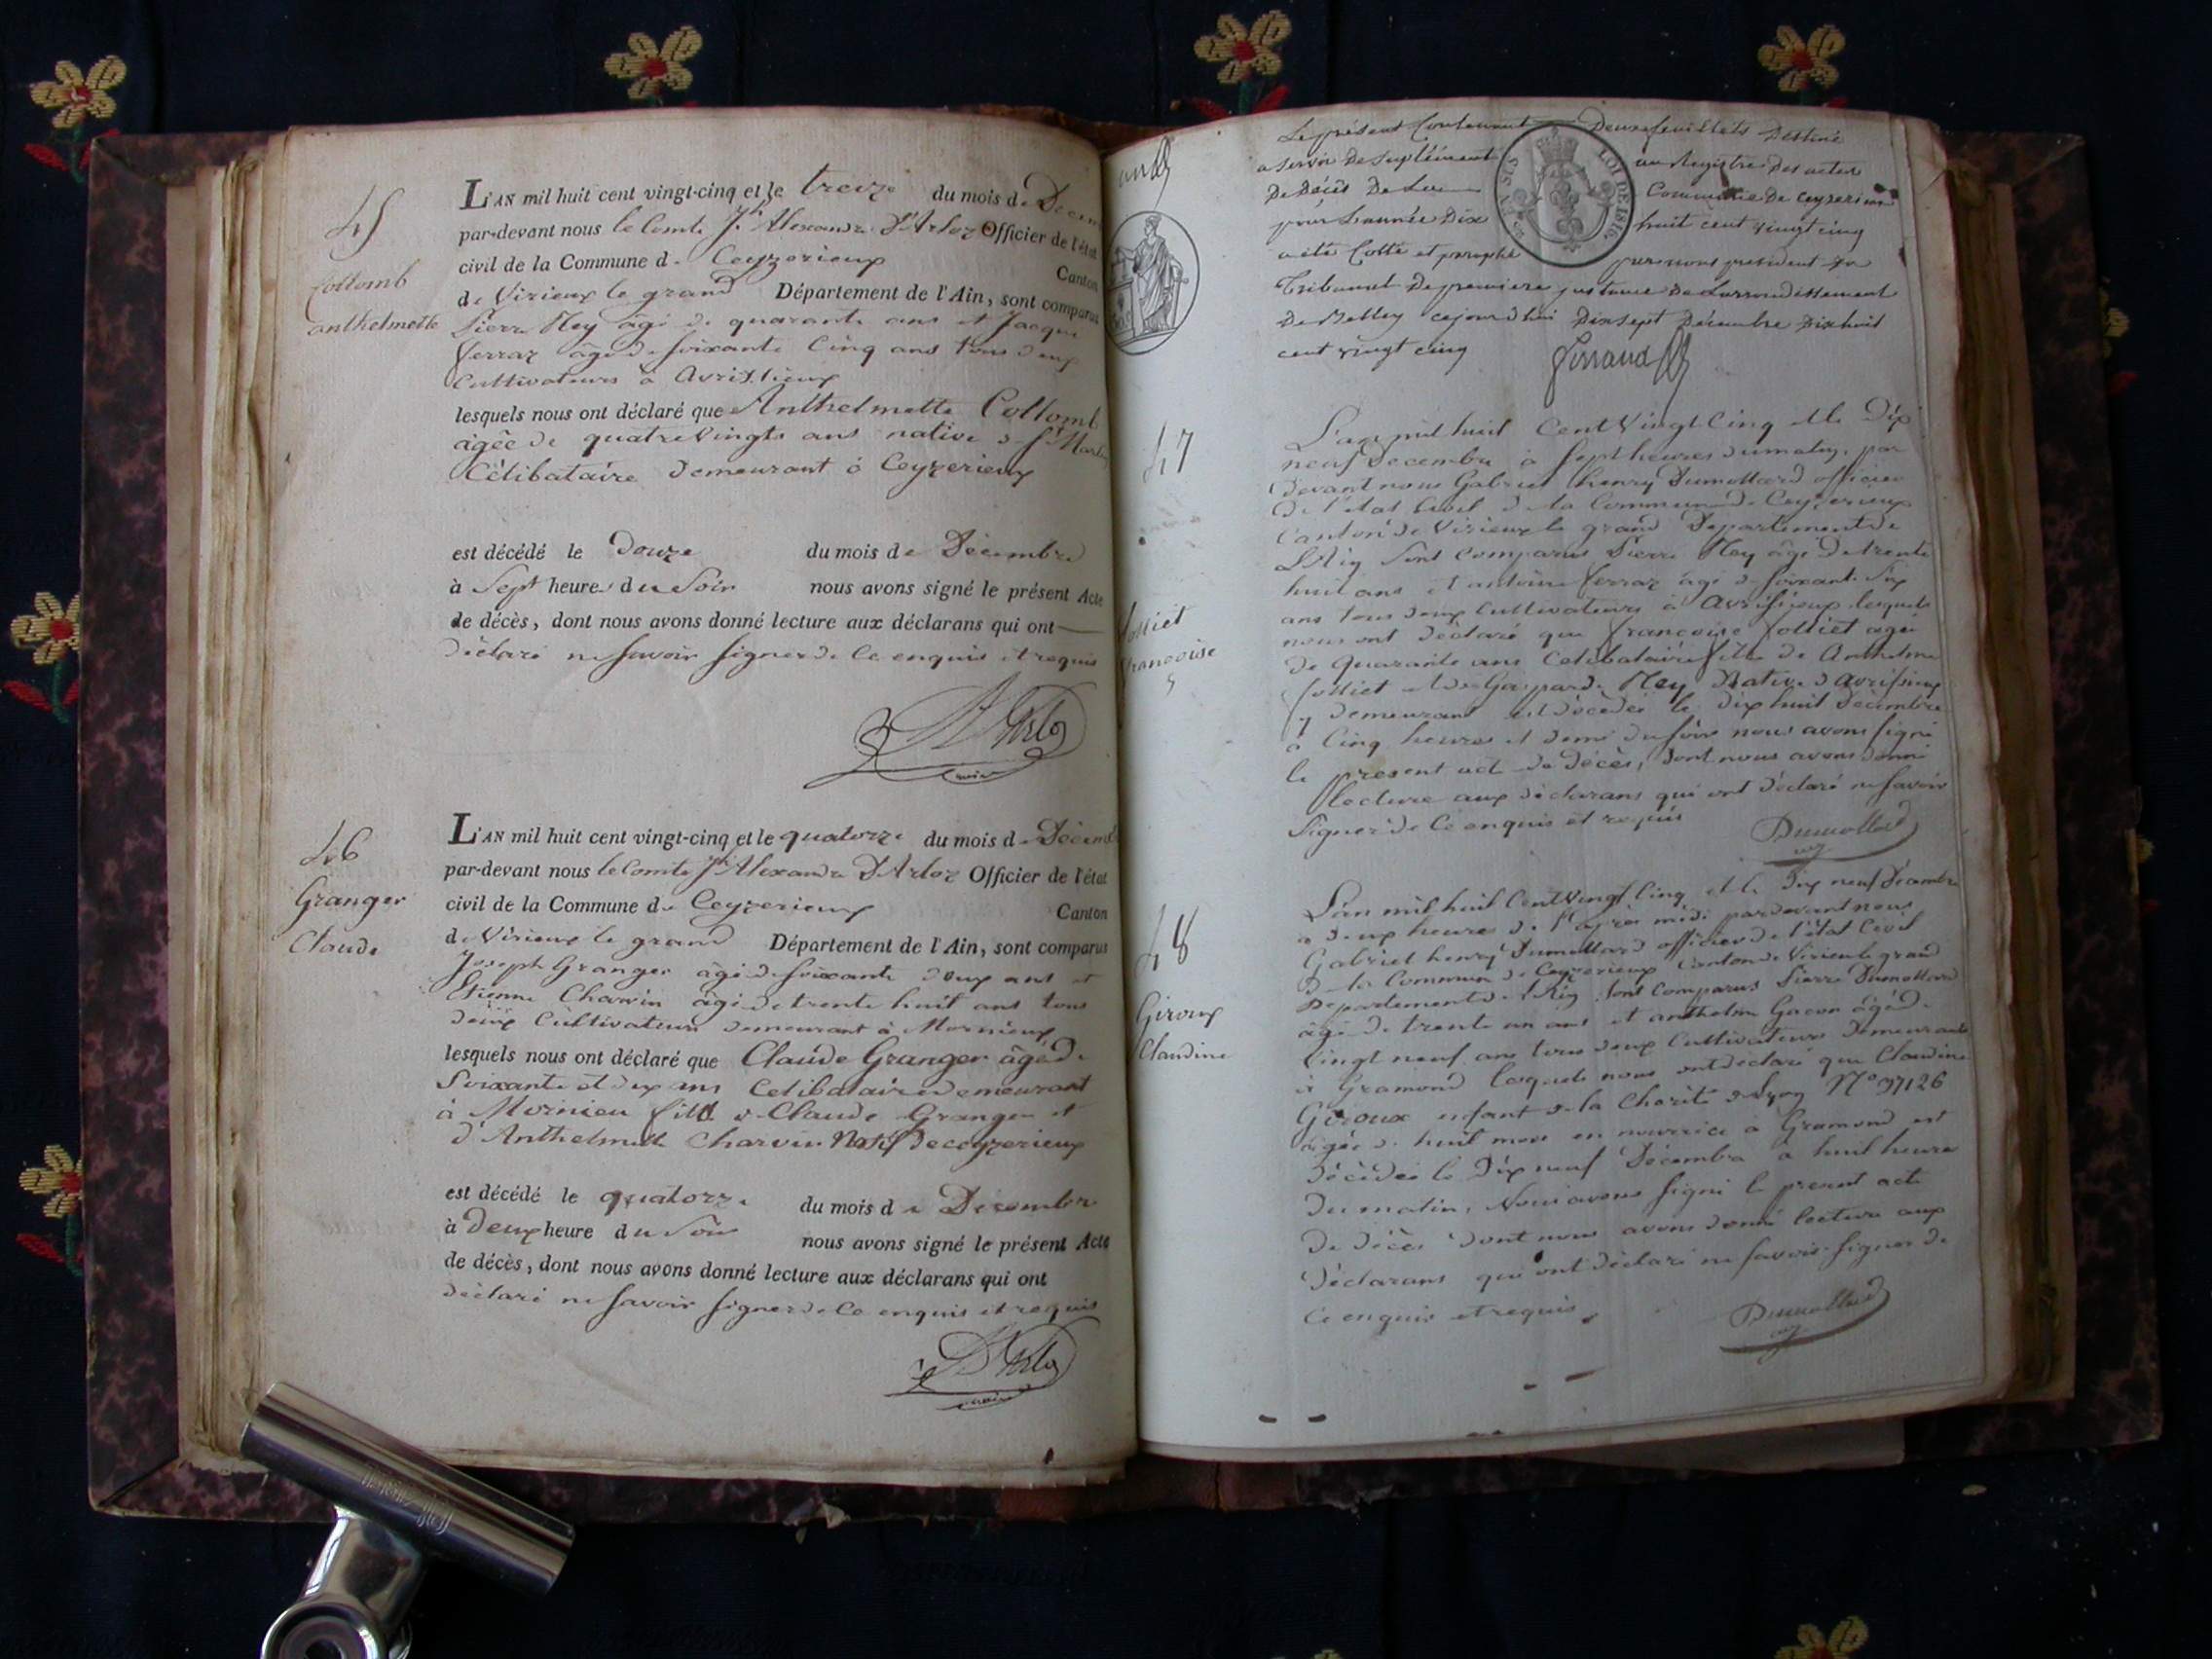 45
Collomb
anthelmette
L'AN mil huit cent vingt-cinq et le treize du mois de Décem
par-devant nous le Comte Jh Alexandre D'Arloz Officier de l'état
civil de la Commune de Ceyzerieux Canton
de Virieux le grand Département de l'Ain, sont comparus
Pierre Mey âgé de quarante ans et Jacque
ferraz âgé de soixante Cinq ans tous deux
Cultivateurs à Avrissieux
lesquels nous ont déclaré que Anthelmette Collomb
âgée de quatre Vingts ans native de St Martin
Célibataire demeurant à Ceyzerieux
est décédé le douze du mois de Décembre
à Sept heures du Soir nous avons signé le présent Acte
de décès, dont nous avons donné lecture aux déclarans qui ont
déclaré ne Savoir Signer de Ce enquis et requis
46
Granger
Claude
L'AN mil huit cent vingt-cinq et le quatorze du mois de Décem
par-devant nous le Comte Jh Alexandre D'Arloz Officier de l'état
civil de la Commune de Ceyzerieux Canton
de Virieux le grand Département de l'Ain, sont comparus
Joseph Granger âgé de soixante deux ans et
Etienne Charvin âgé de trente huit ans tous
deux Cultivateurs demeurant à Mornieux
lesquels nous ont déclaré que Claude Granger âgé de
Soixante et dix ans Celibataire demeurant
à Mornieu fils de Claude Granger et
d'Anthelmette Charvin Natif de ceyzerieux
est décédé le quatorze du mois de Décembre
à Deux heure du Soir nous avons signé le présent Acte
de décès, dont nous avons donné lecture aux déclarans qui ont
déclaré ne Savoir Signer de Ce enquis et requis
Le présent Contenant Deux feuillets Destiné
a servir De Suplément au Registre Des actes
De Décès De La Commune De Ceyzerieux
pour L'année Dix huit cent vingt cinq
a été Cotté et paraphé par nous president du
Tribunal De premiere justance De Larrondissement
De Belley cejourd'hui Dix sept Décembre Dix huit
cent vingt cinq
EN SUS
LOI DE 1816
47
folliet
francoise
L'an mil huit Cent Vingt Cinq et le Dix
neuf Decembre à Sept heures du matin, par
devant nous Gabriel henry Dumollard officier
de l'état Civil de la Commune de Ceyzerieux
Canton de Virieux le grand Departement de
L'Ain Sont Comparus Pierre Mey âgé De trente
huit ans et antoine ferraz âgé de Soixante Six
ans tous deux Cultivateurs à Avrissieux lesquels
nous ont déclaré que francoise folliet agée
de Quarante ans Celibataire fille de Anthelme
folliet et de Gasparde Mey Native d'avrissieux
y demeurant est décédée le dix huit Décembre
à Cinq heures et demi du soir nous avons signé
le present acte de Décès, dont nous avons donné
lecture aux déclarans qui ont déclaré ne savoir
Signer de Ce enquis et requis
Dumollard
48
Giroux
Claudine
L'an mil huit Cent Vingt Cinq et le Dix neuf Décembre
a deux heure de l'après midi par devant nous
Gabriel henry Dumollard officier de l'état Civil
de la Commune de Ceyzerieux Canton de Virieu le grand
Departement de l'Ain sont Comparus Pierre Dumollard
âgé de trente un ans et anthelme Gacon âgé de
Vingt neuf ans tous deux Cultivateurs demeurants
à Gramond lesquels nous ont déclaré que Claudine
Giroux enfant de la Charité de Lyon No 37126
âgée de huit mois en nourrice à Gramond est
décédée le Dix neuf Décembre à huit heure
du matin, Nous avons signé le present acte
De décès dont nous avons donné lecture aux
Déclarans qui ont déclaré ne savoir signer de
Ce enquis et requis.
Dumollard